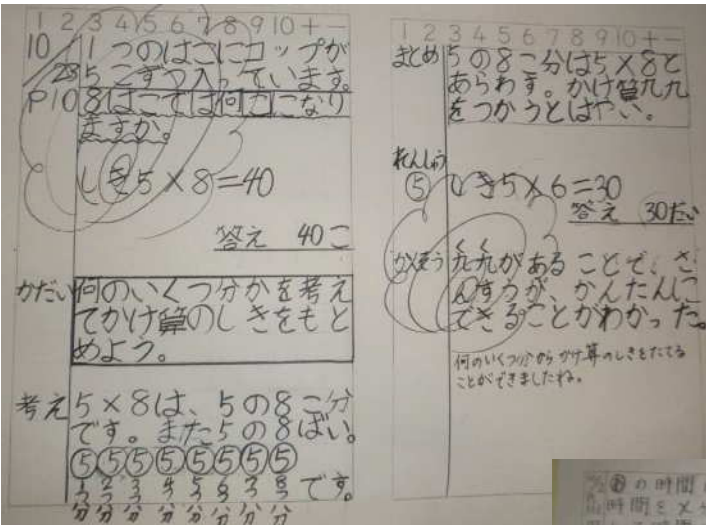 1 2 3 4 5 6 7 8 9 10 + −
10/28 1つのはこにコップが
5こずつ入っています。
P10 8はこでは何こになり
ますか。
しき5×8=40
答え 40こ
かだい 何のいくつ分かを考え
てかけ算のしきをもと
めよう。
考え 5×8は、5の8こ分
です。また5の8ばい。
⑤⑤⑤⑤⑤⑤⑤⑤
1つ分 2つ分 3つ分 4つ分 5つ分 6つ分 7つ分 8つ分 です。
1 2 3 4 5 6 7 8 9 10 + −
まとめ 5の8こ分は5×8と
あらわす。かけ算九九
をつかうとはやい。
れんしゅう
⑤ しき5×6=30
答え 30だい
九九があることで、さ
んすうが、かんたんに
できることがわかった。
何のいくつ分から かけ算のしきをたてる
ことができましたね。
の時間
時間を